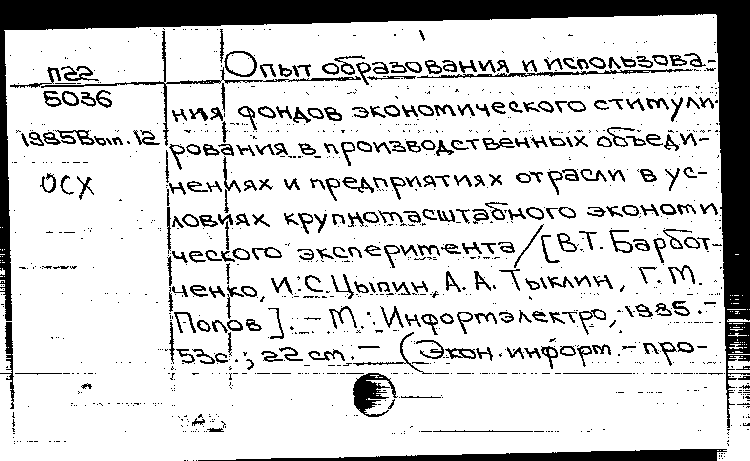 П22
5036
1985 Вып. 12
ОСХ
Опыт образования и использова-
ния фондов экономического стимули-
рования в производственных объеди-
нениях и предприятиях отрасли в ус-
ловиях крупномасштабного экономи
ческого эксперимента / [В.Т. Барбот-
ченко, И.С. Цыпин, А.А. Тыклин, Г.М.
Попов]. – М.: Информэлектро, 1985. –
53с.; 22 см. – (Экон. информ. – про-